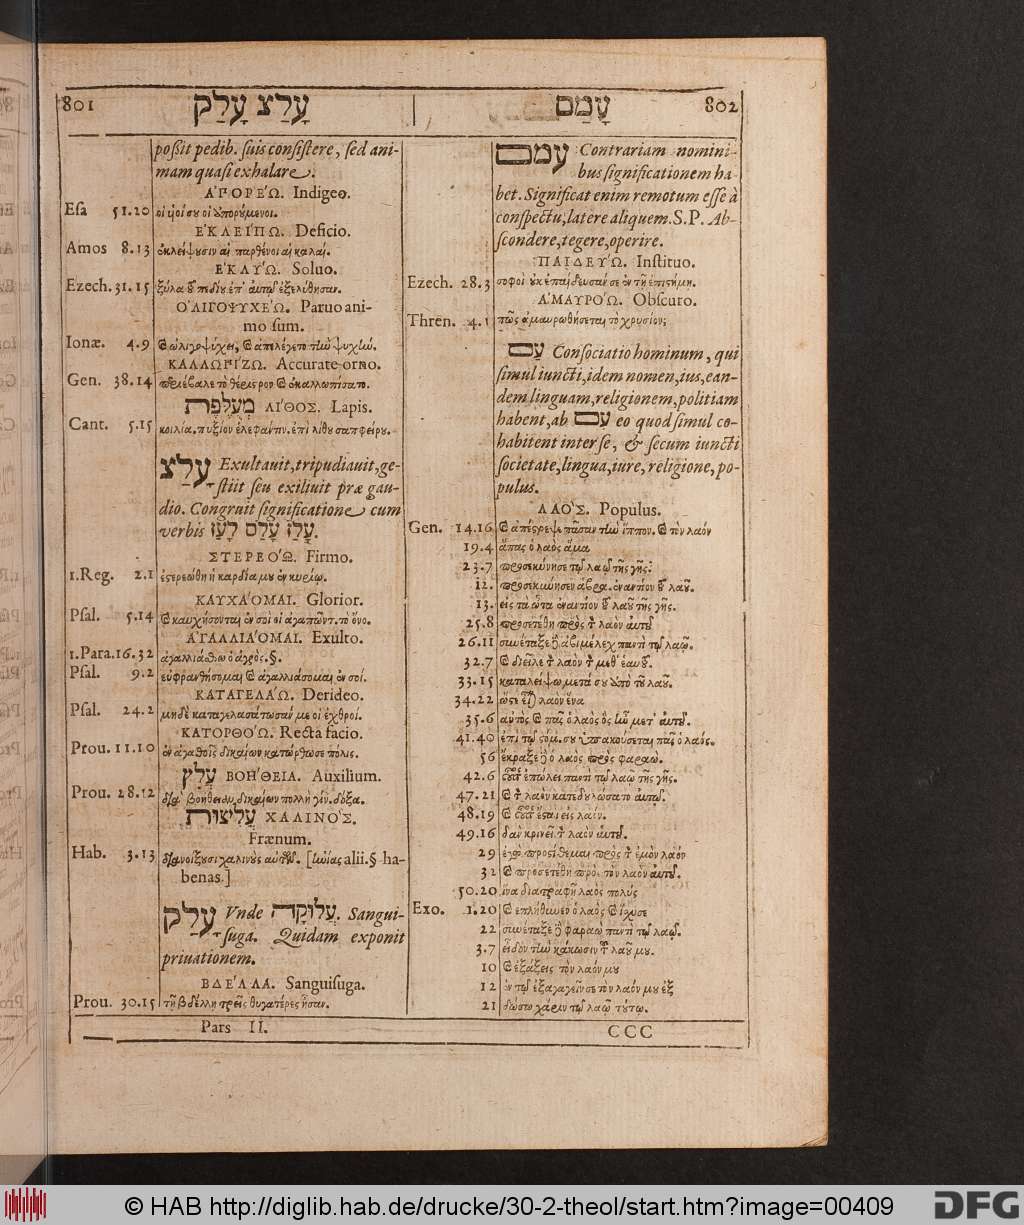 801 עָלַץ עָלַק
poßit pedib. suis consistere, sed ani-
mam quasi exhalare.
ἈΓΟΡΕΏ. Indigeo.
Esa 51.20
ἘΚΛΕΊΠΩ. Deficio.
Amos 8.13 ἐκλείψουσιν αἱ παρθένοι αἱ καλαί.
ἘΚΛΥΏ. Soluo.
Ezech. 31.15
ὈΛΙΓΟΨΥΧΕΏ. Paruo ani-
mo sum.
Ionæ. 4.9
ΚΑΛΛΩΠΊΖΩ. Accurate orno.
Gen. 38.14 περιέβαλε τὸ θέριστρον καὶ ἐκαλλωπίσατο.
מְעֻלֶּפֶת ΛΊΘΟΣ. Lapis.
Cant. 5.15 κοιλία. πυξίον ἐλεφάντιν. ἐπὶ λίθου σαπφείρου.
עָלַץ Exultauit, tripudiauit, ge-
stiit seu exiliuit præ gau-
dio. Congruit significatione cum
verbis עָלַז עָלַס לָעַז.
ΣΤΕΡΕΟΏ. Firmo.
1.Reg. 2.1 ἐστερεώθη ἡ καρδία μου ἐν κυρίῳ.
ΚΑΥΧΆΟΜΑΙ. Glorior.
Psal. 5.14 καὶ καυχήσονται ἐν σοὶ οἱ ἀγαπῶντ. τὸ ὄνο.
ἈΓΑΛΛΙΆΟΜΑΙ. Exulto.
1.Para. 16.32 ἀγαλλιάσθω ὁ ἀγρός. §.
Psal. 9.2 εὐφρανθήσομαι καὶ ἀγαλλιάσομαι ἐν σοί.
ΚΑΤΑΓΕΛΆΩ. Derideo.
Psal. 24.2 μηδὲ καταγελασάτωσάν με οἱ ἐχθροί.
ΚΑΤΟΡΘΌΩ. Recta facio.
Prou. 11.10 ἐν ἀγαθοῖς δικαίων κατώρθωσε πόλις.
עֲלֹץ ΒΟΉΘΕΙΑ. Auxilium.
Prou. 28.12 διὰ βοήθειαν δικαίων πολλὴ γίν. δόξα.
עֲלִיצוּת ΧΑΛΙΝΌΣ.
Frænum.
Hab. 3.13 διανοίξουσι χαλινοὺς αὐτῶν. [ἡνίας alii. § ha-
benas.]
עָלַק Vnde עֲלוּקָה. Sangui-
suga. Quidam exponit
priuationem.
ΒΔΈΛΛΑ. Sanguisuga.
Prou. 30.15 τῇ βδέλλῃ τρεῖς θυγατέρες ἦσαν.
Pars II.
עָמַם 802
עמם Contrariam nomini-
bus significationem ha-
bet. Significat enim remotum esse à
conspectu, latere aliquem. S.P. Ab-
scondere, tegere, operire.
ΠΑΙΔΕΎΩ. Instituo.
Ezech. 28.3 σοφοὶ οὐκ ἐπαίδευσάν σε ἐν τῇ ἐπιστήμῃ.
ἈΜΑΥΡΌΩ. Obscuro.
Thren. 4.1 πῶς ἀμαυρωθήσεται τὸ χρυσίον;
עַם Consociatio hominum, qui
simul iuncti, idem nomen, ius, ean-
dem linguam, religionem, politiam
habent, ab עם eo quod simul co-
habitent inter se, & secum iuncti
societate, lingua, iure, religione, po-
pulus.
ΛΑΌΣ. Populus.
Gen. 14.16 καὶ ἀπέστρεψε πᾶσαν τὴν ἵππον. καὶ τὸν λαόν
19.4 ἅπας ὁ λαὸς ἅμα
23.7 προσεκύνησε τῷ λαῷ τῆς γῆς.
12. προσεκύνησεν ἀβρα. ἐναντίον τοῦ λαοῦ.
13. εἰς τὰ ὦτα ἐναντίον τοῦ λαοῦ τῆς γῆς.
25.8 προσετέθη πρὸς τὸν λαὸν αὐτοῦ
26.11 συνέταξε δὲ ἀβιμέλεχ παντὶ τῷ λαῷ.
32.7 καὶ διεῖλε τὸν λαὸν τὸν μεθ' ἑαυτοῦ.
33.15 καταλείψω μετά σου ἀπὸ τοῦ λαοῦ.
34.22 ὥστε εἶναι λαὸν ἕνα
35.6 αὐτὸς καὶ πᾶς ὁ λαὸς ὃς ἦν μετ' αὐτοῦ.
41.40 ἐπὶ τῷ στόμ. σου ὑπακούσεται πᾶς ὁ λαός.
56 ἔκραξε δὲ ὁ λαὸς πρὸς φαραώ.
42.6 οὗτος ἐπώλει παντὶ τῷ λαῷ τῆς γῆς.
47.21 καὶ τὸν λαὸν κατεδουλώσατο αὐτῷ.
48.19 καὶ οὗτος ἔσται εἰς λαόν.
49.16 δὰν κρινεῖ τὸν λαὸν αὐτοῦ.
29 ἐγὼ προστίθεμαι πρὸς τὸν ἐμὸν λαόν
32 καὶ προσετέθη πρὸς τὸν λαὸν αὐτοῦ.
50.20 ἵνα διατραφῇ λαὸς πολύς
Exo. 1.20 καὶ ἐπλήθυνεν ὁ λαὸς καὶ ἴσχυσε
22 συνέταξε δὲ φαραὼ παντὶ τῷ λαῷ.
3.7 εἶδον τὴν κάκωσιν τοῦ λαοῦ μου.
10 καὶ ἐξάξεις τὸν λαόν μου
12 ἐν τῷ ἐξαγαγεῖν σε τὸν λαόν μου ἐξ
21 δώσω χάριν τῷ λαῷ τούτῳ.
CCC
© HAB http://diglib.hab.de/drucke/30-2-theol/start.htm?image=00409
DFG